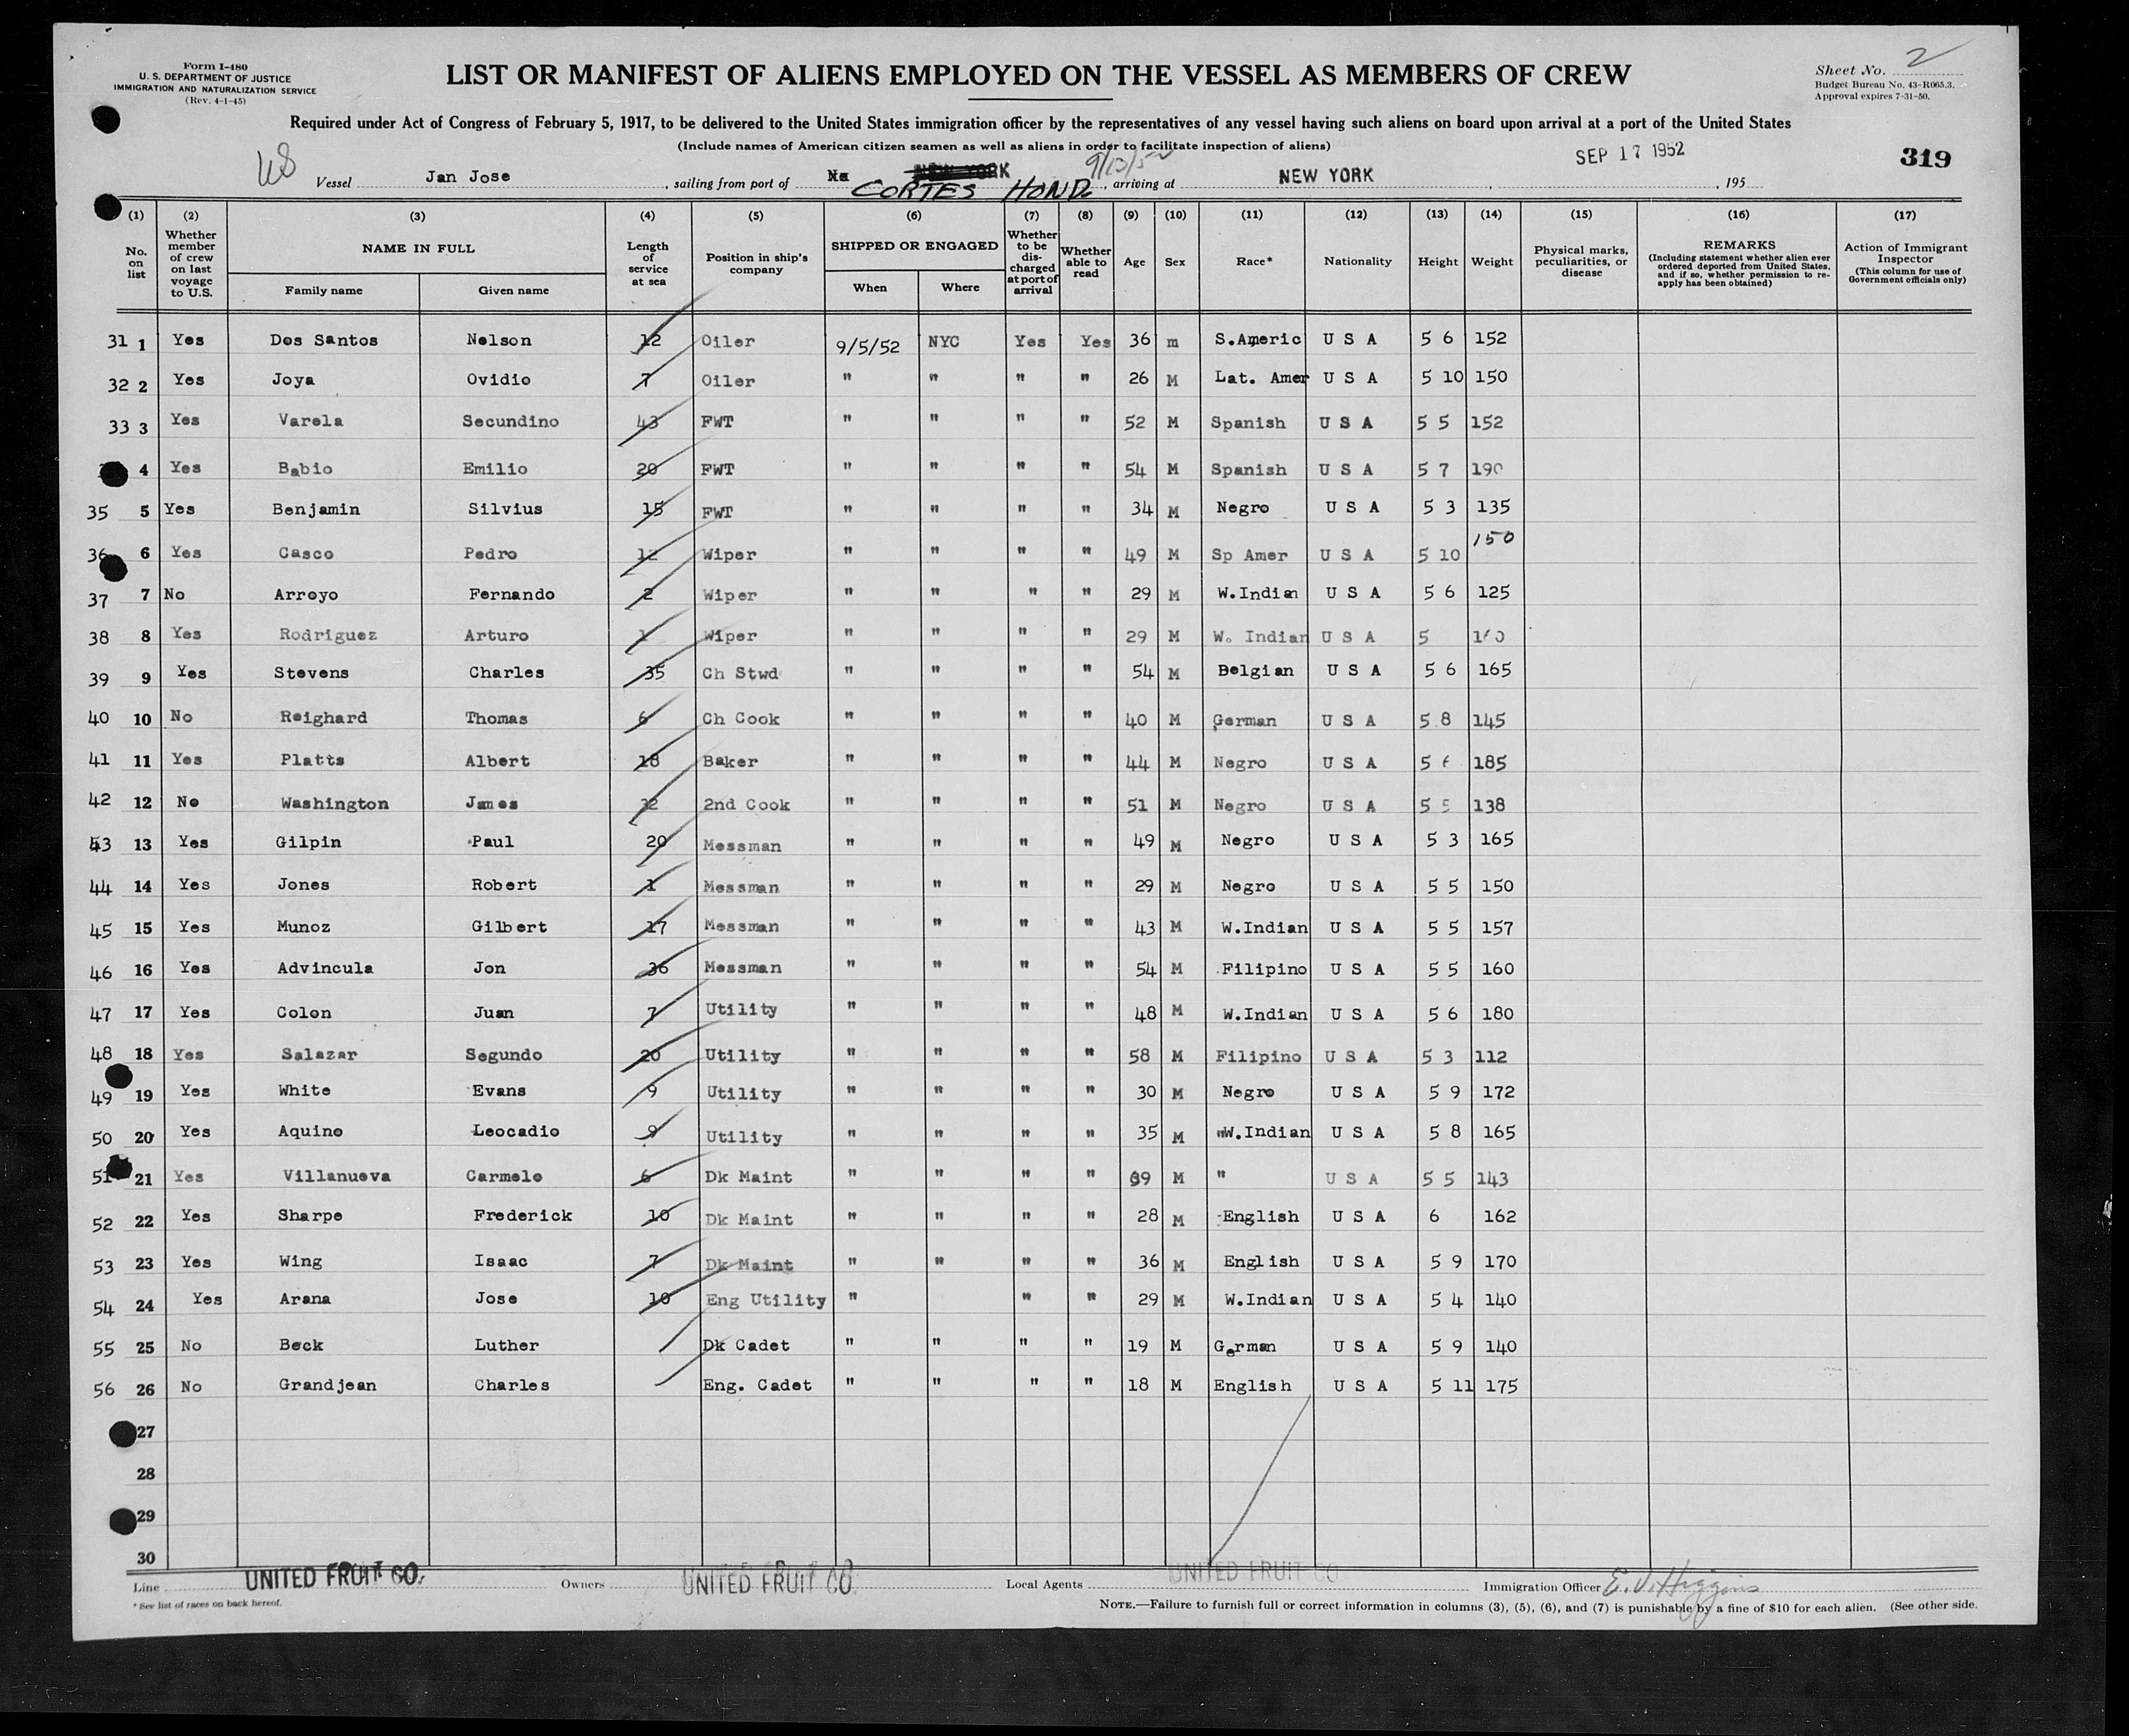 Form I-480
U. S. DEPARTMENT OF JUSTICE
IMMIGRATION AND NATURALIZATION SERVICE
(Rev. 4-1-45)
LIST OR MANIFEST OF ALIENS EMPLOYED ON THE VESSEL AS MEMBERS OF CREW
Sheet No. 2
Budget Bureau No. 43-R065.3.
Approval expires 7-31-50.
Required under Act of Congress of February 5, 1917, to be delivered to the United States immigration officer by the representatives of any vessel having such aliens on board upon arrival at a port of the United States
(Include names of American citizen seamen as well as aliens in order to facilitate inspection of aliens)
SEP 17 1952
319
Vessel Jan Jose, sailing from port of NEW YORK CORTES HOND. 9/13/52, arriving at NEW YORK, 195
(1) (2) (3) (4) (5) (6) (7) (8) (9) (10) (11) (12) (13) (14) (15) (16) (17)
No. on list
Whether member of crew on last voyage to U.S.
NAME IN FULL
Family name
Given name
Length of service at sea
Position in ship's company
SHIPPED OR ENGAGED
When
Where
Whether to be discharged at port of arrival
Whether able to read
Age
Sex
Race*
Nationality
Height
Weight
Physical marks, peculiarities, or disease
REMARKS
(Including statement whether alien ever ordered deported from United States, and if so, whether permission to reapply has been obtained)
Action of Immigrant Inspector
(This column for use of Government officials only)
31 1 Yes Dos Santos Nelson 12 Oiler 9/5/52 NYC Yes Yes 36 m S.Americ U S A 5 6 152
32 2 Yes Joya Ovidio 7 Oiler " " " " 26 M Lat. Amer U S A 5 10 150
33 3 Yes Varela Secundino 43 FWT " " " " 52 M Spanish U S A 5 5 152
4 Yes Babio Emilio 20 FWT " " " " 54 M Spanish U S A 5 7 190
35 5 Yes Benjamin Silvius 15 FWT " " " " 34 M Negro U S A 5 3 135
36 6 Yes Casco Pedro 12 Wiper " " " " 49 M Sp Amer U S A 5 10 150
37 7 No Arroyo Fernando 2 Wiper " " " " 29 M W.Indian U S A 5 6 125
38 8 Yes Rodriguez Arturo 1 Wiper " " " " 29 M W. Indian U S A 5
39 9 Yes Stevens Charles 35 Ch Stwd " " " " 54 M Belgian U S A 5 6 165
40 10 No Reighard Thomas 6 Ch Cook " " " " 40 M German U S A 5 8 145
41 11 Yes Platts Albert 18 Baker " " " " 44 M Negro U S A 5 185
42 12 No Washington James 32 2nd Cook " " " " 51 M Negro U S A 5 5 138
43 13 Yes Gilpin Paul 20 Messman " " " " 49 M Negro U S A 5 3 165
44 14 Yes Jones Robert 1 Messman " " " " 29 M Negro U S A 5 5 150
45 15 Yes Munoz Gilbert 17 Messman " " " " 43 M W.Indian U S A 5 5 157
46 16 Yes Advincula Jon 36 Messman " " " " 54 M Filipino U S A 5 5 160
47 17 Yes Colon Juan 7 Utility " " " " 48 M W.Indian U S A 5 6 180
48 18 Yes Salazar Segundo 20 Utility " " " " 58 M Filipino U S A 5 3 112
49 19 Yes White Evans 9 Utility " " " " 30 M Negro U S A 5 9 172
50 20 Yes Aquino Leocadio 9 Utility " " " " 35 M W.Indian U S A 5 8 165
51 21 Yes Villanueva Carmelo 6 Dk Maint " " " " 39 M " U S A 5 5 143
52 22 Yes Sharpe Frederick 10 Dk Maint " " " " 28 M English U S A 6 162
53 23 Yes Wing Isaac 7 Dk Maint " " " " 36 M English U S A 5 9 170
54 24 Yes Arana Jose 10 Eng Utility " " " 29 M W.Indian U S A 5 4 140
55 25 No Beck Luther Dk Cadet " " " " 19 M German U S A 5 9 140
56 26 No Grandjean Charles Eng. Cadet " " " " 18 M English U S A 5 11 175
27
28
29
30
Line UNITED FRUIT CO. Owners UNITED FRUIT CO. Local Agents UNITED FRUIT CO. Immigration Officer E. J. Higgins
*See list of races on back hereof.
NOTE.—Failure to furnish full or correct information in columns (3), (5), (6), and (7) is punishable by a fine of $10 for each alien. (See other side.